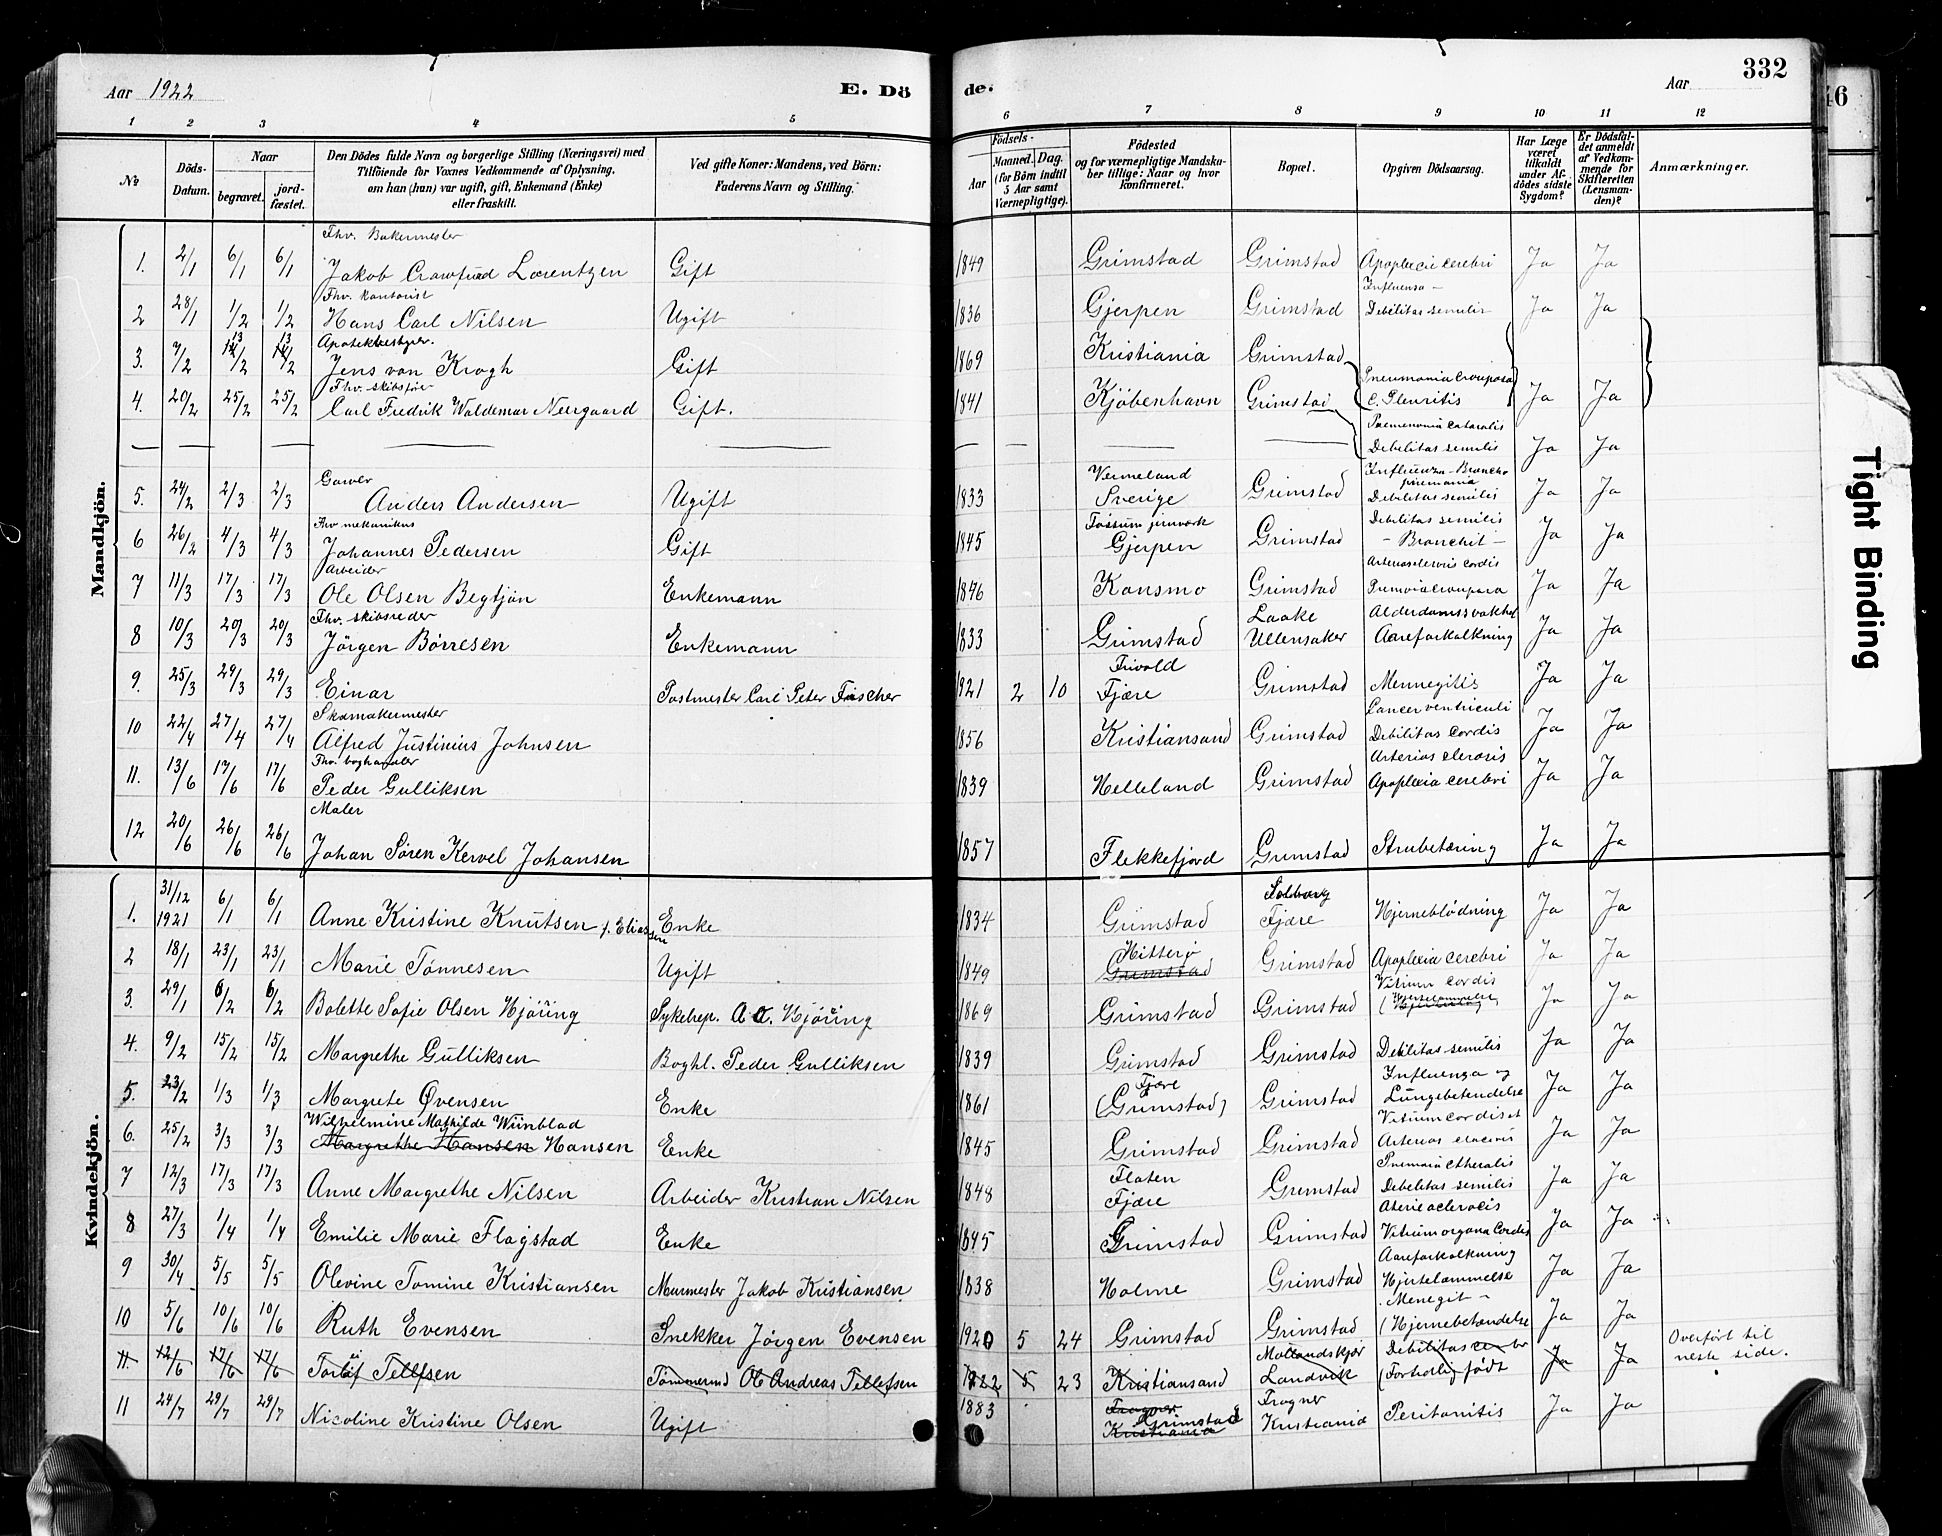 Aar 1922 E. Dö
de. Aar 332
46
1 2 3 4 5 6 7 8 9 10 11 12
No
Döds-Datum.
Naar
begravet.
jord-fæstet.
Den Dödes fulde Navn og borgerlige Stilling (Næringsvei) med
Tilföiende for Voxnes Vedkommende af Oplysning,
om han (hun) var ugift, gift, Enkemand (Enke)
eller fraskilt.
Ved gifte Koner: Mandens, ved Börn:
Faderens Navn og Stilling.
Födsels-
Aar
Maaned. Dag.
(for Börn indtil
5 Aar samt
Værnepligtige).
Födested
og for værnepligtige Mandsku-
ber tillige: Naar og hvor
konfirmeret.
Bopæl.
Opgiven Dödsaarsag.
Har Læge
været
tilkaldt
under Af-
dödes sidste
Sygdom?
Er Dödsfal-
det anmeldt
af Vedkom-
mende for
Skifteretten
(Lensman-
den)?
Anmærkninger.
Mandkjön.
Fhv. Bakermester
1. 2/1 6/1 6/1 Jakob Crawfurd Lorentzen Gift 1849 Grimstad Grimstad Apoplexie cerebri Ja Ja
Fhv. kontorist Influensa –
2 28/1 1/2 1/2 Hans Carl Nilsen Ugift 1836 Gjerpen Grimstad Debilitas semilis Ja Ja
Apotekbestyrer.
3. 7/2 13/2 13/2 Jens von Krogh Gift 1869 Kristiania Grimstad
Fhv. skibsfører Pneumonia Crouposa
4. 20/2 25/2 25/2 Carl Fredrik Waldemar Neergaard Gift. 1841 Kjöbenhavn Grimstad c. Pleuritis Ja Ja
Pnemenonia cataralis
— — — — — — Debilitas semilis Ja Ja
Garver Vermeland Influenza-Broncho pnemania
5. 24/2 2/3 2/3 Anders Andersen Ugift 1833 Sverige Grimstad Debilitas semilis Ja Ja
Fhv mekanikus Fossum jernverk Debilitas semilis
6 26/2 4/3 4/3 Johannes Pedersen Gift 1845 Gjerpen Grimstad – Bronchit – Ja Ja
Arbeider Arterioscleroris cordis
7 11/3 17/3 17/3 Ole Olsen Begtjön Enkemann 1846 Konsmo Grimstad Ja Ja
Fhv. skibsreder Laake
8 10/3 20/3 20/3 Jörgen Börresen Enkemann 1833 Grimstad Ullensaker Aareforkalkning Ja Ja
Frivold
9. 25/3 29/3 29/3 Einar Postmester Carl Peter Fischer 1921 2 10 Fjære Grimstad Mennegitis Ja Ja
Skomakermester Cancer ventriculi
10 22/4 27/4 27/4 Alfred Justinius Johnsen 1856 Kristiansand Grimstad Debilitas Cordis Ja Ja
Fhv. boghandler Arterios cleroris
11. 13/6 17/6 17/6 Peder Gulliksen 1839 Helleland Grimstad Apoplexia cerebri Ja Ja
Maler
12 20/6 26/6 26/6 Johan Sören Kervel Johansen 1857 Flekkefjord Grimstad Strubetæring Ja Ja
Kvindekjön.
31/12 Solberg
1. 1921 6/1 6/1 Anne Kristine Knutsen f. Eliassen Enke 1834 Grimstad Fjære Hjerneblödning Ja Ja
Hitterø
2 18/1 23/1 23/1 Marie Tönnesen Ugift 1849 Grimstad Grimstad Apoplexia cerebri Ja Ja
Vitium cordis
3. 29/1 6/2 6/2 Bolette Sofie Olsen Hjöring Sykelrep. A O. Hjöring 1869 Grimstad Grimstad Ja Ja
4. 9/2 15/2 15/2 Margrethe Gulliksen Boghl. Peder Gulliksen 1839 Grimstad Grimstad Debilitas semilis Ja Ja
Fjære Influenza og
5. 23/2 1/3 1/3 Margrete Øvensen Enke 1861 (Grimstad) Grimstad Lungebetendelse Ja Ja
Wilhelmine Mathilde Winblad Vitium cordis et
6. 25/2 3/3 3/3 Margrethe Hansen Hansen Enke 1845 Grimstad Grimstad Ja Ja
Flaten
7 12/3 17/3 17/3 Anne Margrethe Nilsen Arbeider Kristian Nilsen 1848 Fjære Grimstad Debilitas semilis Ja Ja
8 27/3 1/4 1/4 Emilie Marie Flagstad Enke 1845 Grimstad Grimstad Vitium organa Cordis Ja Ja
Aareforkalkning
9 30/4 5/5 5/5 Olevine Tomine Kristiansen Murmester Jakob Kristiansen 1838 Holme Grimstad Hjertelammelse Ja Ja
Menegit –
10 5/6 10/6 10/6 Ruth Evensen Snekker Jörgen Evensen 1920 5 24 Grimstad Grimstad (Hjernebetendelse Ja Ja
Mollandskjær Debilitas Overfört til
11 12/6 17/6 17/6 Torlöf Tellefsen Tömmermd Ole Andreas Tellefsen 1922 5 23 Kristiansand Landvik (Fortidlig födt Ja Ja neste side.
Frogner Frogner
11 24/7 29/7 29/7 Nicoline Kristine Olsen Ugift 1883 Grimstad Kristiania Kristiania Peritonitis Ja Ja
Tight Binding